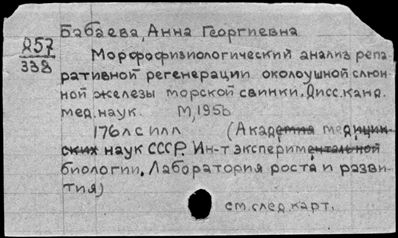 Бабаева, Анна Георгиевна
Д57
338
Морфофизиологический анализ репа
ративной регенерации околоушной слюн
ной железы морской свинки. Дисс. канд.
мед. наук. М, 1956
176 лс илл (Академия медицин
ских наук СССР. Ин-т экспериментальной
биологии. Лаборатория роста и разви-
тия)
см. след. карт.